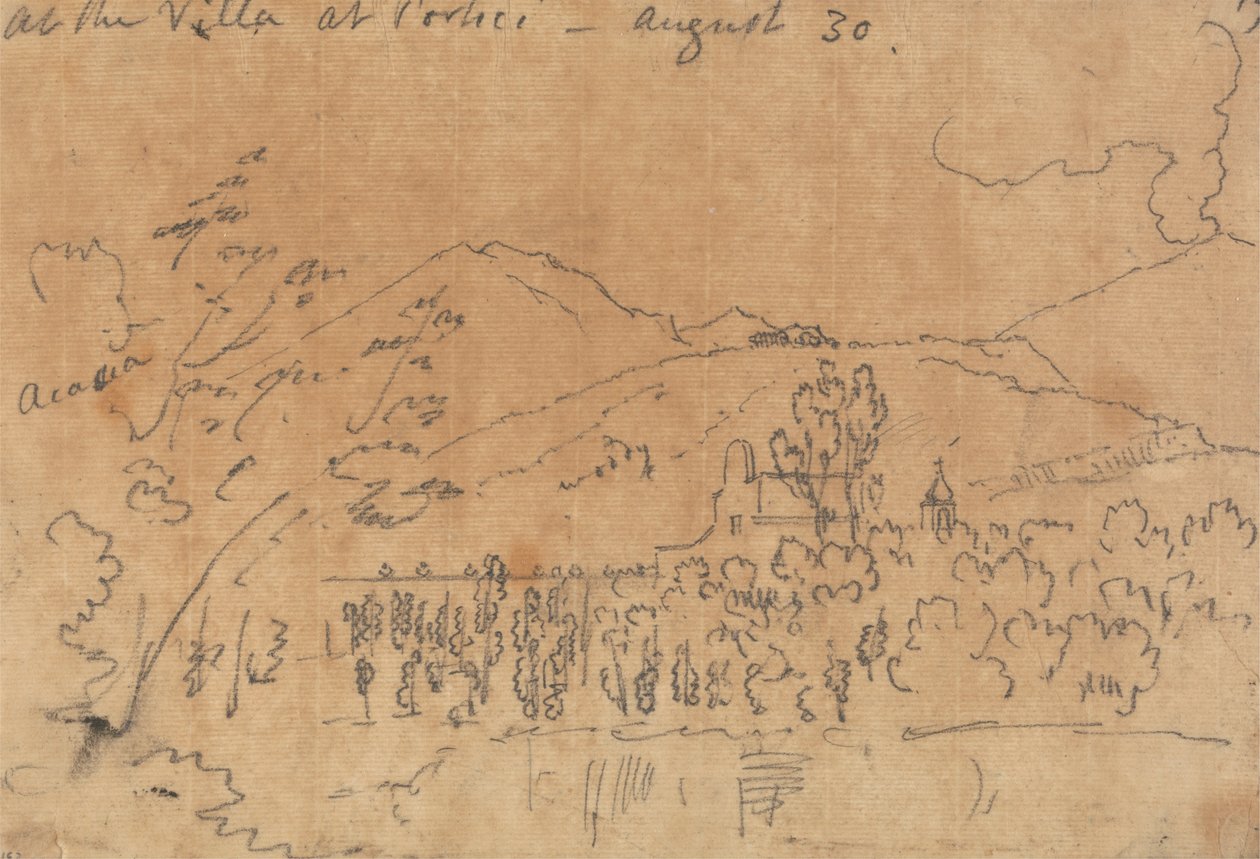 at the Villa at Portici – august 30.
acacia
woody